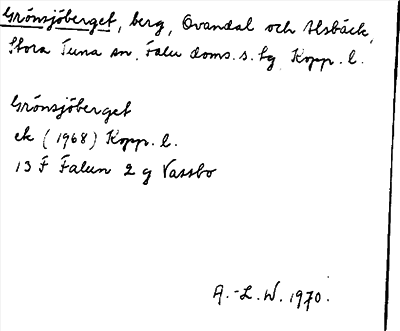 Grönsjöberget, berg, Ovandal och Ulsbäck,
Stora Tuna sn, Falu doms. s. tg Kopp. l.
Grönsjöberget
ek (1968) Kopp. l.
13 F Falun 2 g Vassbo
A.-L. W. 1970.